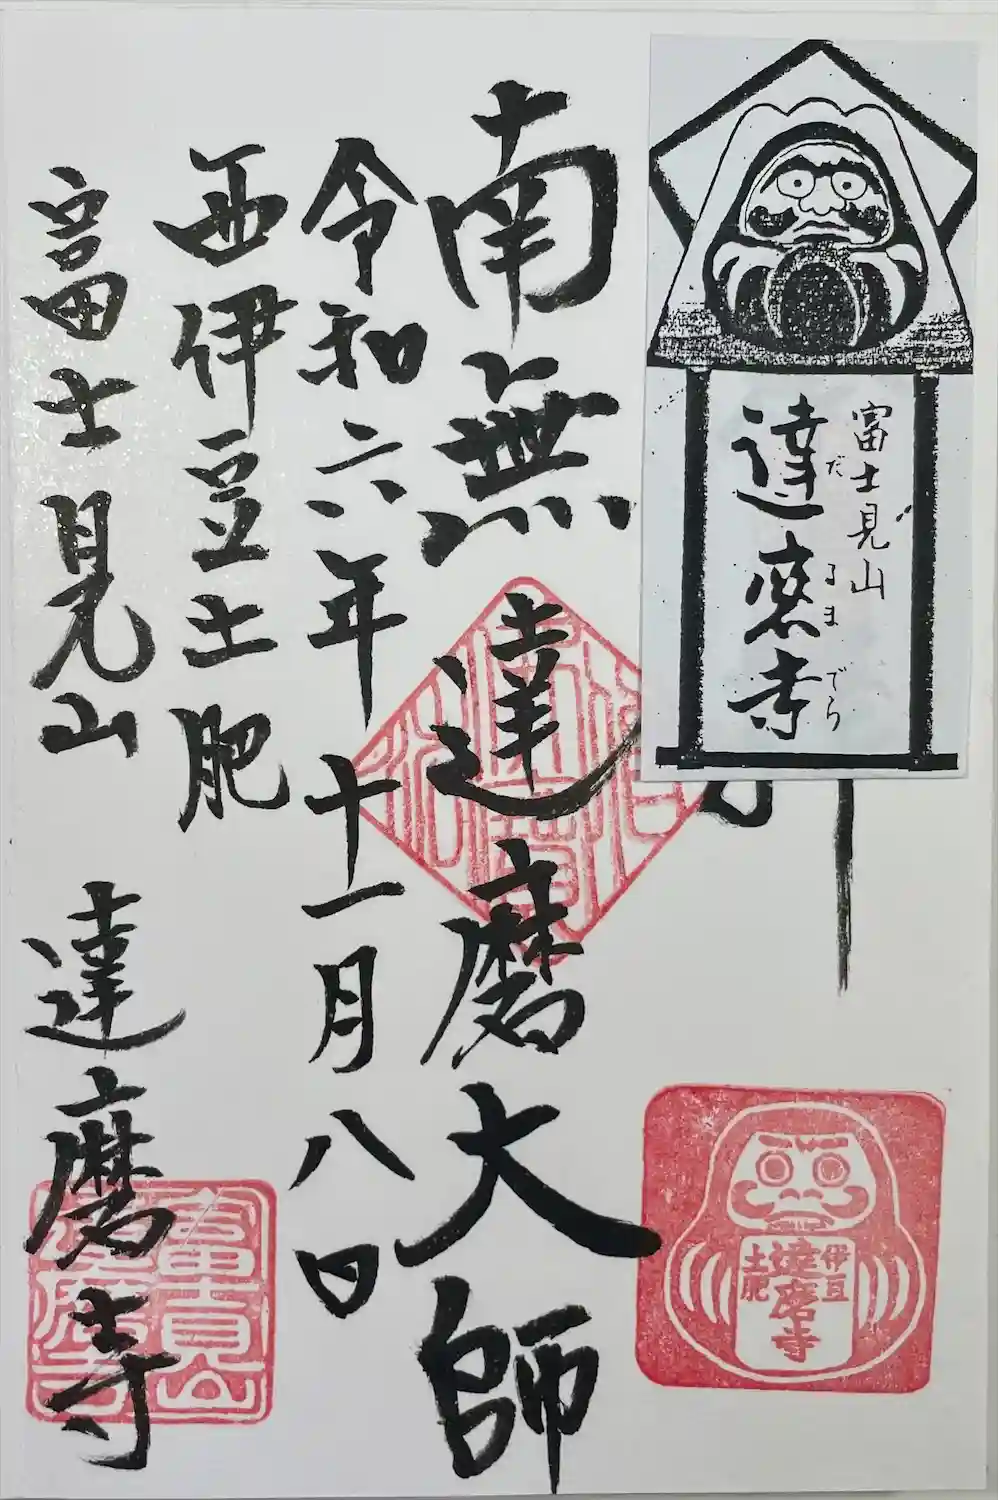 富士見山
達磨寺
だるまでら
南無達磨大師
令和六年十一月八日
西伊豆土肥
富士見山 達磨寺
伊豆
達磨寺
土肥
富士見山
達磨寺